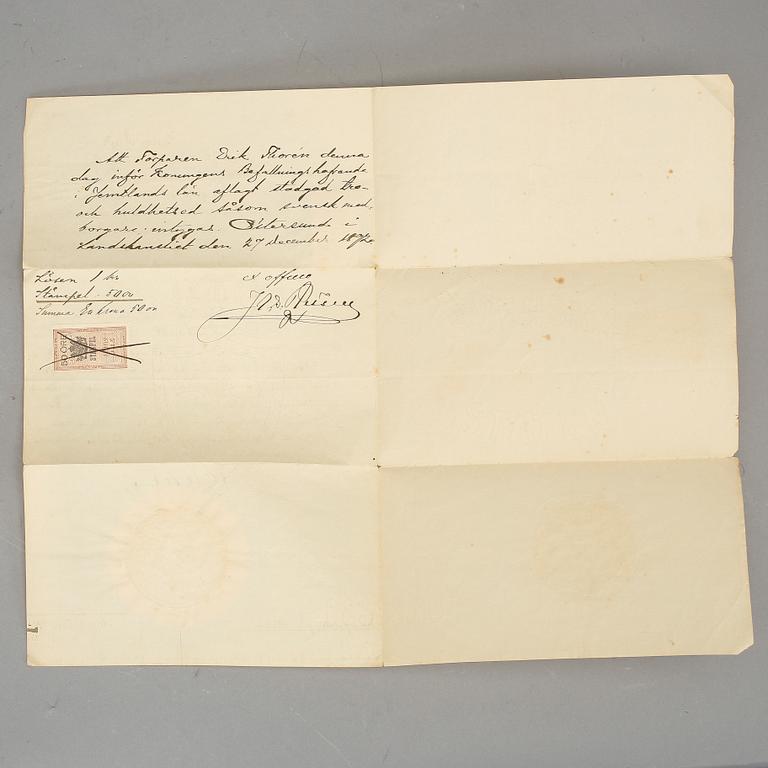 Att Torparen Erik Thorén denna
dag inför Konungens Befallningshafvande
i Jemtlands län aflagt stadgad tro-
och huldhetsed såsom svensk med-
borgare; intygar. Östersund i
Landskansliet den 27 December
Lösen 1 kr
Stämpel - 50 ör
Summa En krona 50 ör
ex officio
50 ÖRE